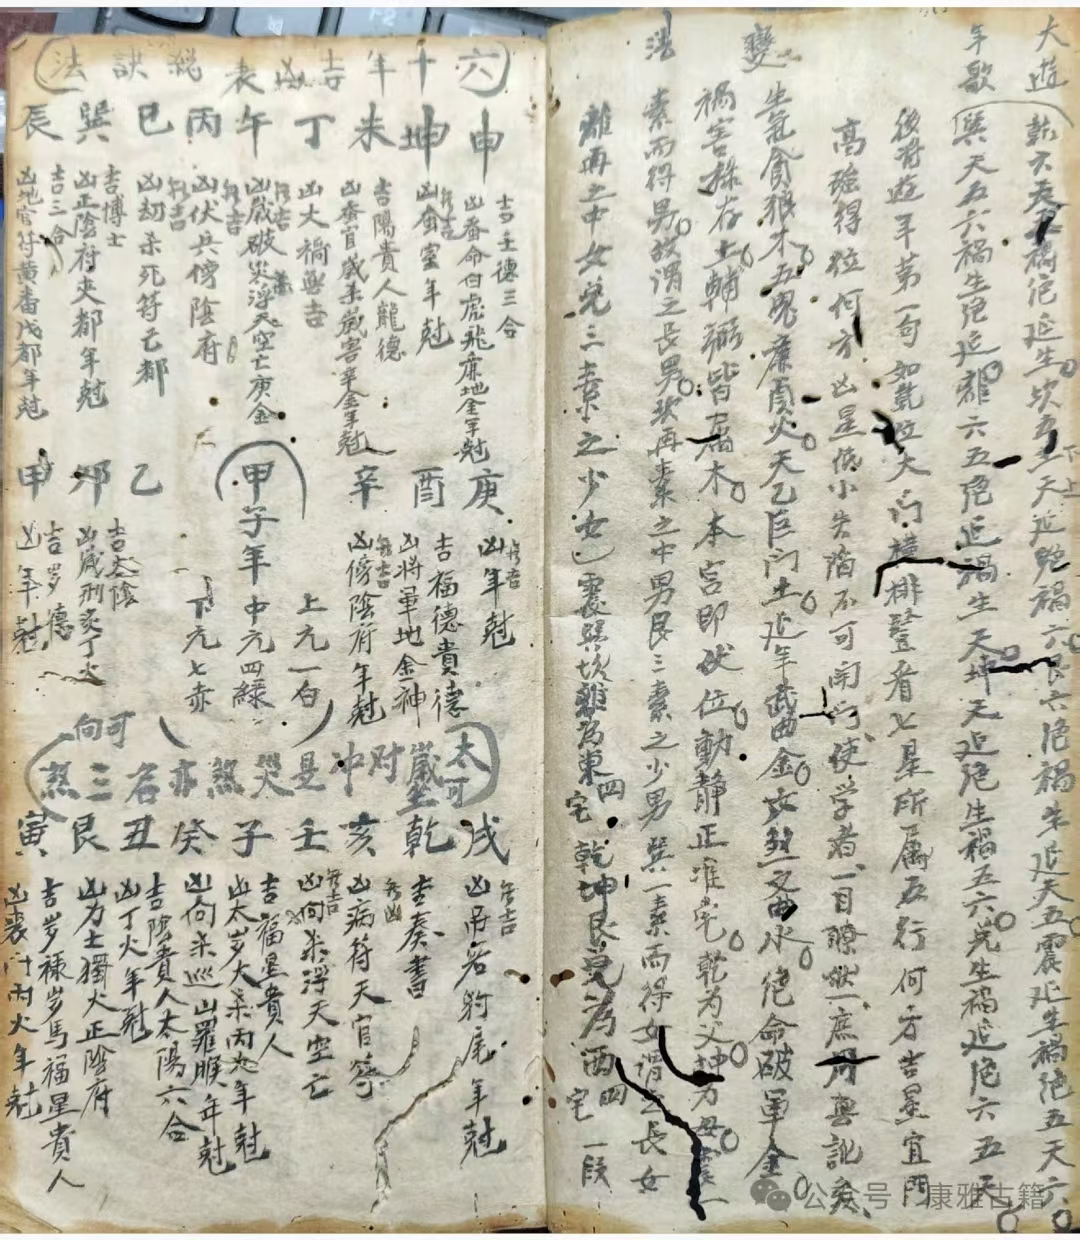 大遊
年歌
乾六天五禍絕延生坎五生天延絕禍六艮六絕禍生延天五震延生禍絕五天六
巽天五六禍生絕延離六五絕延禍生天坤天延絕生禍五六兌生禍延絕六五天
後看遊年第一句如乾位大門樓排登看七星所屬五行何方吉星宜門
高強得位何方凶星低小失陷不可開門使学者一目瞭然一庶用無訛矣
變
生氣貪狼木五鬼廉貞火天乙巨门土延年武曲金六煞文曲水绝命破軍金
禍害祿存土輔弼皆属木本宫即伏位動靜正准宅乾為父坤为母震一
法
索而得男故謂之長男坎再索之中男艮三索之少男巽一索而得女謂之長女
離再之中女兌三索之少女震巽坎離為東四宅乾坤艮兌為西四宅一段
六十年吉凶表總訣法
申坤未丁午丙巳巽辰
吉壬德三合
凶番命白虎飛廉地金年尅
無吉
凶蚕室年尅
吉陽貴人龍德
凶蚕官歲杀歲害辛金年尅
凶大禍無吉
無吉
凶歲破災浮天空亡庚金
無吉
凶伏兵傍陰府
無吉
凶劫杀死符亡都
吉博士
凶正陰府夹都年尅
吉三合
凶地官符黃番戊都年尅
庚酉辛
無吉
凶年尅
吉福德貴德
凶將軍地金神
無吉
凶傍陰府年尅
甲子年
上元一白
中元四綠
下元七赤
乙卯甲
吉太陰
凶歲刑炙丁火
吉岁德
凶年尅
太歲对冲是災煞亦名三煞
可坐
可向
戌乾亥壬子癸丑艮寅
無吉
凶吊客豹尾年尅
吉奏書
無凶
凶病符天官符
無吉
凶向杀浮天空亡
吉福星貴人
凶太岁大杀丙火年尅
凶向杀巡山羅睺年尅
吉陰貴人太陽六合
凶丁火年尅
凶力士獨火正陰府
吉岁祿岁馬福星貴人
凶丧门丙火年尅
公众号·康雅古籍